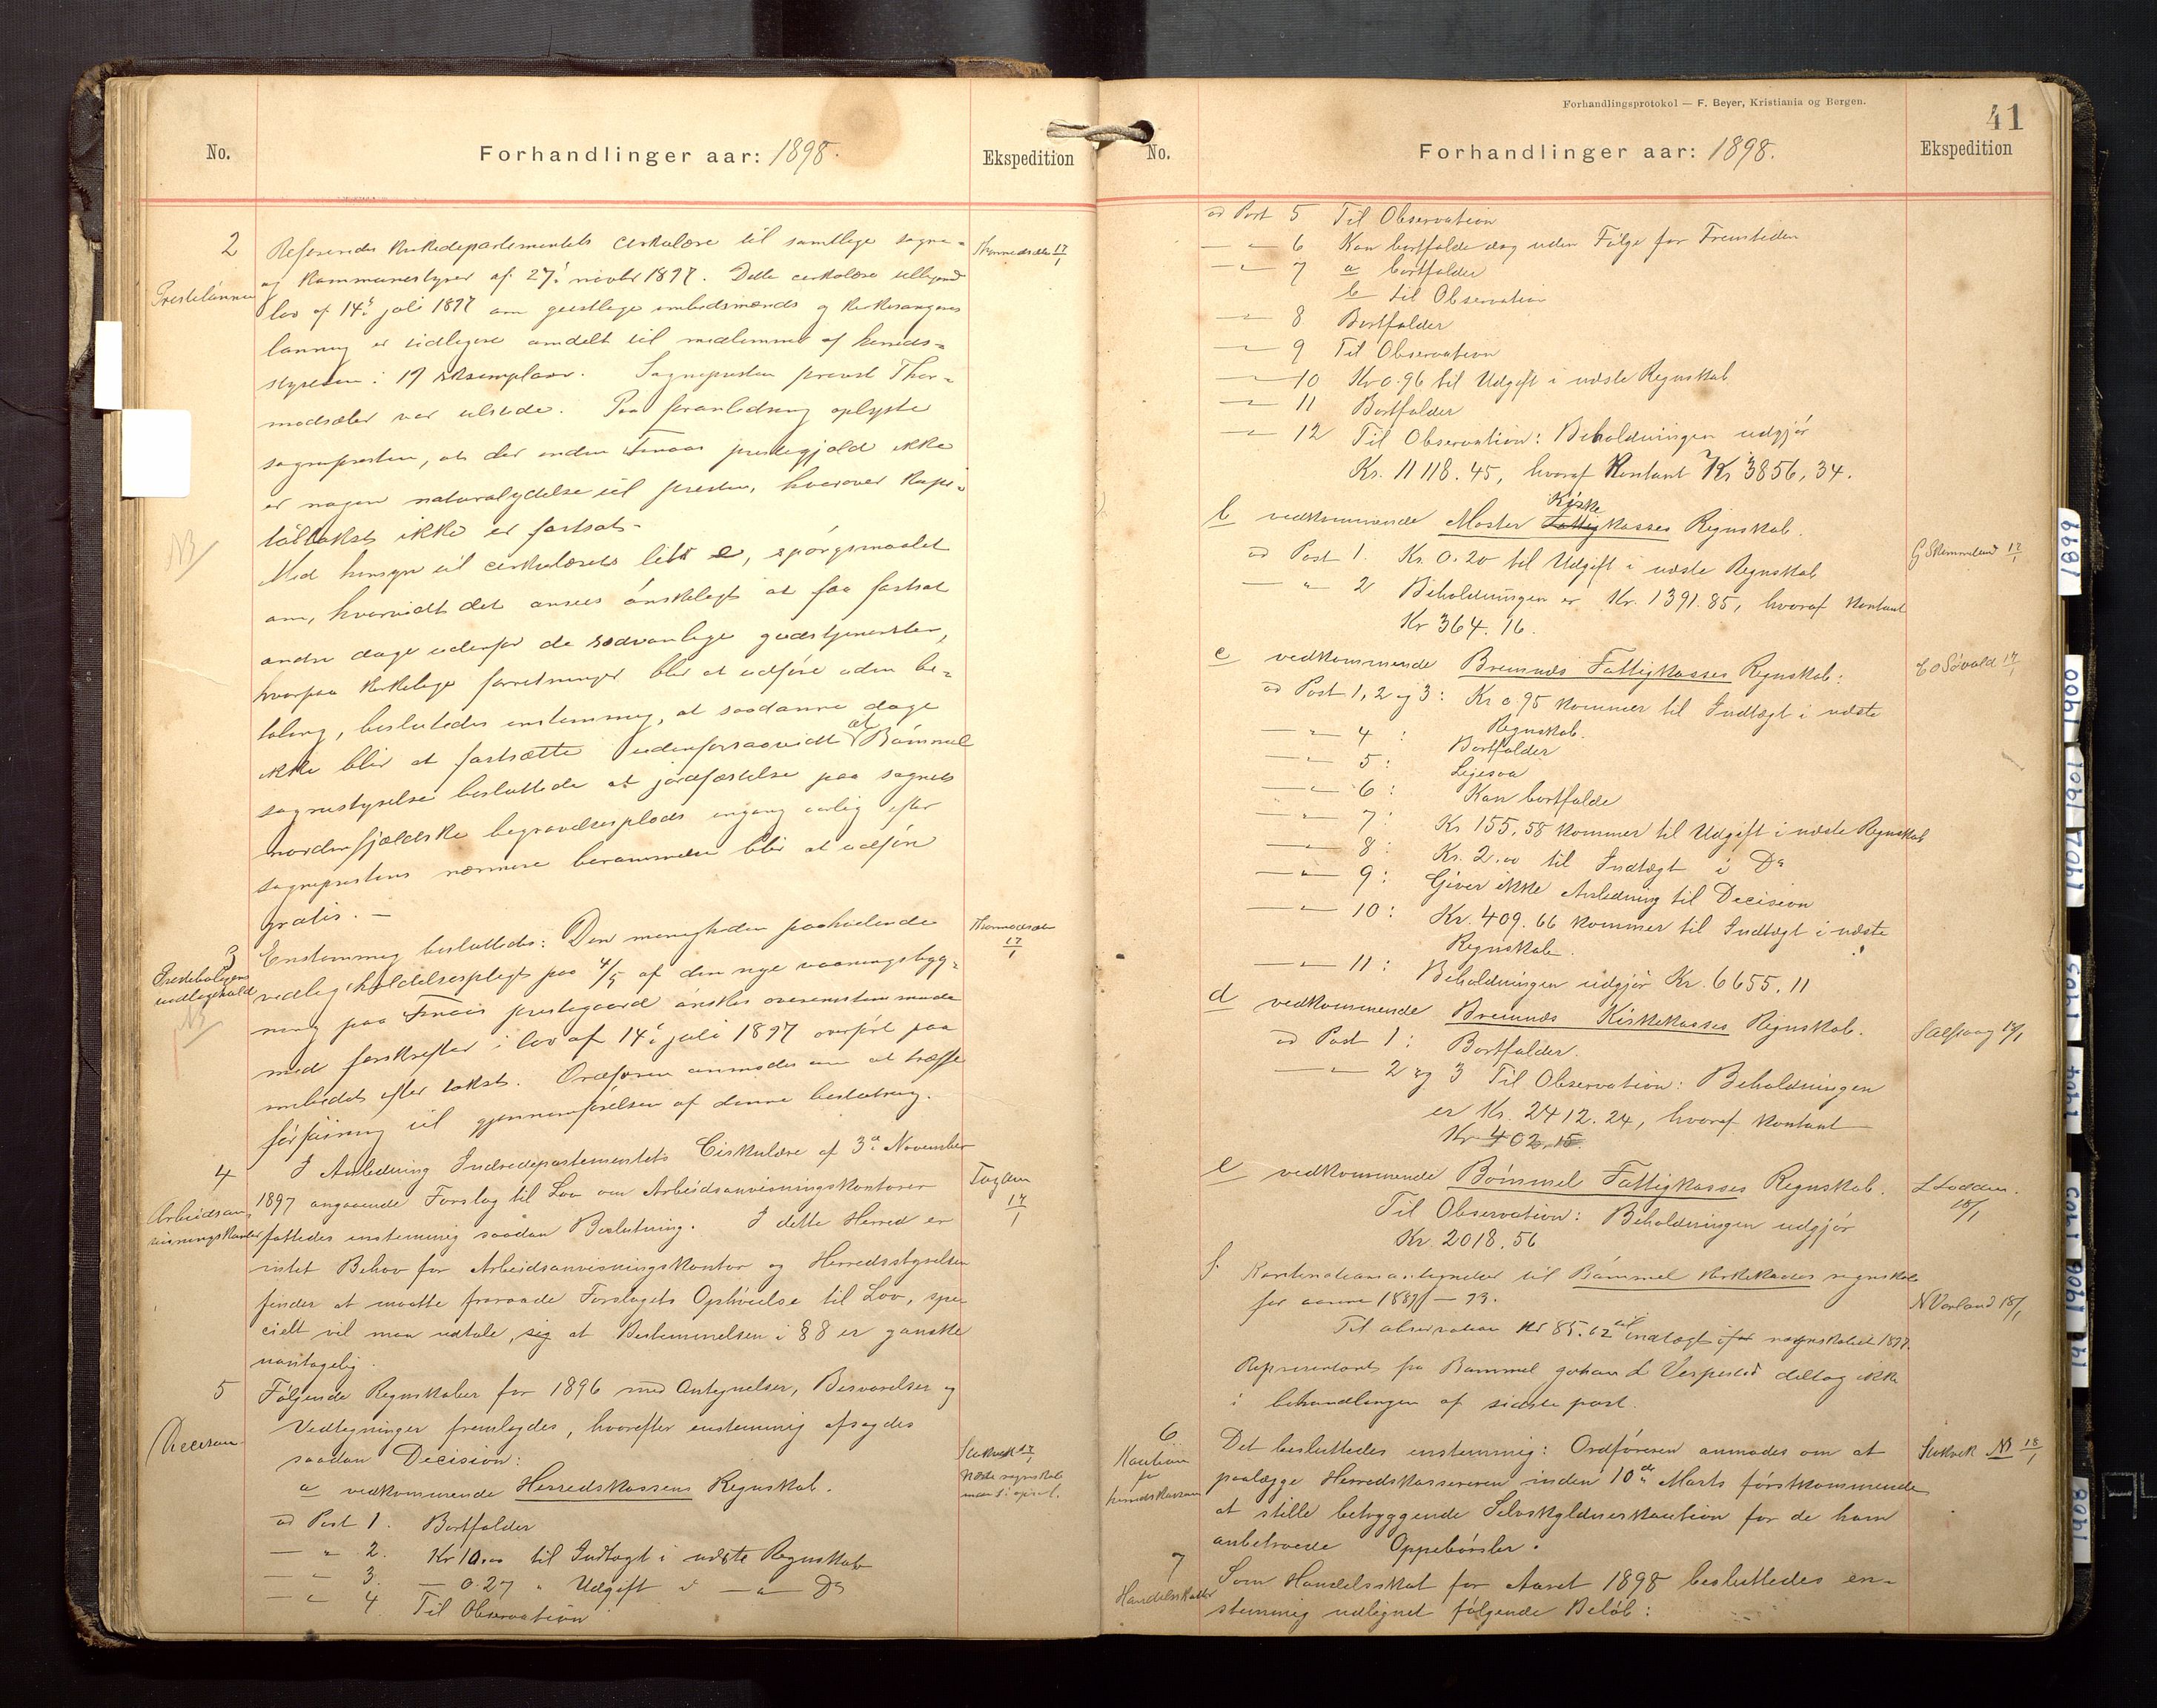 No.
Forhandlinger aar: 1898.
Ekspedition
2
Prestelønnen
Refereredes Kirkedepartementets cirkulære til samtlige sogne-
og kommunestyrer af 27. novbr 1897. Dette cirkulære vedlagt
lov af 14. juli 1897 om geistlige embedsmænds og kirkesangeres
lønning er tidligere omdelt til medlemmer af herreds-
styrelsen i 19 eksemplarer. Sognepresten provst Thor-
modsæter var tilstede. Paa foranledning oplyste
sognepresten, at der inden Finaas prestegjæld ikke
er nogen naturalydelse til presten, hvorover kapi-
taltakst ikke er fastsat.
Med hensyn til cirkulærets litr e, spørgsmaalet
om, hvorvidt det ansees ønskeligt at faa fastsat
andre dage udenfor de sædvanlige gudstjenester,
hvorpaa kirkelige forretninger blir at udføre uden be-
taling, besluttedes enstemmig, at saadanne dage
ikke blir at fastsætte udenforsaavidt at Bømmel
sognestyrelse besluttede at jordfæstelse paa sognets
nordenfjældske begravelsesplads engang aarlig efter
sogneprestens nærmere berammelse blir at udføre
gratis. —
Thormodsæter 17/1
NB
3
Presteboligens
vedligehold
NB
Enstemmig besluttedes: Den menigheden paahvilende
vedligeholdelsespligt paa 4/5 af den nye vaaningsbyg-
ning paa Finaas prestegaard ønskes overensstemmende
med forskrifter i lov af 14. juli 1897 overført paa
embedet efter takst. Ordføreren anmodes om at træffe
føranstaltning til gjennemførelsen af denne beslutning.
Thormodsæter
17/1
4
Arbeidsan-
visningskontor
I Anledning Indredepartementets Cirkulære af 3die November
1897 angaaende Forslag til Lov om Arbeidsanvisningskontorer
fattedes enstemmig saadan Beslutning. I dette Herred er
intet Behov for Arbeidsanvisningskontor og Herredsstyrelsen
finder at maatte fraraade Forslagets Ophøielse til Lov, spe-
cielt vil man udtale, sig at Bestemmelsen i § 8 er ganske
uantagelig.
17/1
5
Decision
Følgende Regnskaber for 1896 med Antegnelser, Besvarelser og
Vedtegninger fremlagdes, hvorefter enstemmig afsagdes
saadan Decision:
a vedkommende Herredskassens Regnskab.
Stokvik 17/1
Næste regnskab
ad Post 1. Bortfalder
— „ 2. Kr 10.00 til Indtægt i næste Regnskab
— „ 3. — 0.27 „ Udgift i — „ — Do
— „ 4 Til Observation
Forhandlingsprotokol — F. Beyer, Kristiania og Bergen.
41
No.
Forhandlinger aar: 1898.
Ekspedition
ad Post 5 Til Observation
— „ 6 Kan bortfalde dog uden Følge for Fremtiden
— „ 7 a bortfalder
b til Observation
— „ 8 Bortfalder
— „ 9 Til Observation
— „ 10 Kr 0.96 til Udgift i næste Regnskab
— „ 11 Bortfalder
— „ 12 Til Observation: Beholdningen udgjør
Kr. 11 118.45, hvoraf Kontant Kr 3856,34.
b vedkommende Moster Fattig Kirke kasses Regnskab.
G Skimmeland 17/1
ad Post 1. Kr. 0.20 til Udgift i næste Regnskab
— „ 2 Beholdningen er Kr. 1391.85, hvoraf Kontant
Kr 364.16.
c vedkommende Bremnæs Fattigkasses Regnskab:
17/1
ad Post 1, 2 og 3: Kr 0.95 kommer til Indtægt i næste
Regnskab.
— „ 4 : Bortfalder
— „ 5 : Ligesaa
— „ 6 : Kan bortfalde
— „ 7 : Kr 155.58 kommer til Udgift i næste Regnskab
— „ 8 : Kr. 2.00 til Indtægt i Do
— „ 9 : Giver ikke Anledning til Decision
— „ 10 : Kr. 409.66 kommer til Indtægt i næste
Regnskab.
— „ 11 : Beholdningen udgjør Kr. 6655.11
d vedkommende Bremnæs Kirkekasses Regnskab.
18/1
ad Post 1 : Bortfalder.
— „ 2 og 3 Til Observation: Beholdningen
er Kr. 2412.24, hvoraf kontant
Kr 402.15
e vedkommende Bømmel Fattigkasses Regnskab.
18/1
Til Observation: Beholdningen udgjør
Kr. 2018.56
f. til Bømmel kirkekasses regnskab
N Vorland 18/1
Til observation Kr 85.62 til indtægt i regnskabet 1897.
Representant fra Bømmel Johan L Vespestad deltog ikke
i behandlingen af sidste post.
6
Kaution
for
herredskassereren
Det besluttedes enstemmig: Ordføreren anmodes om at
paalægge Herredskassereren inden 10de Marts førstkommende
at stille betryggende Selvskyldnerkaution for de ham
anbetroede Oppebørsler.
Stokvik NB 18/1
7
Handelsskatter
Som Handelsskat for Aaret 1898 besluttedes en-
stemmig udlignet følgende Beløb:
1899
1900
1901
1902
1903
1904
1905
1906
1908